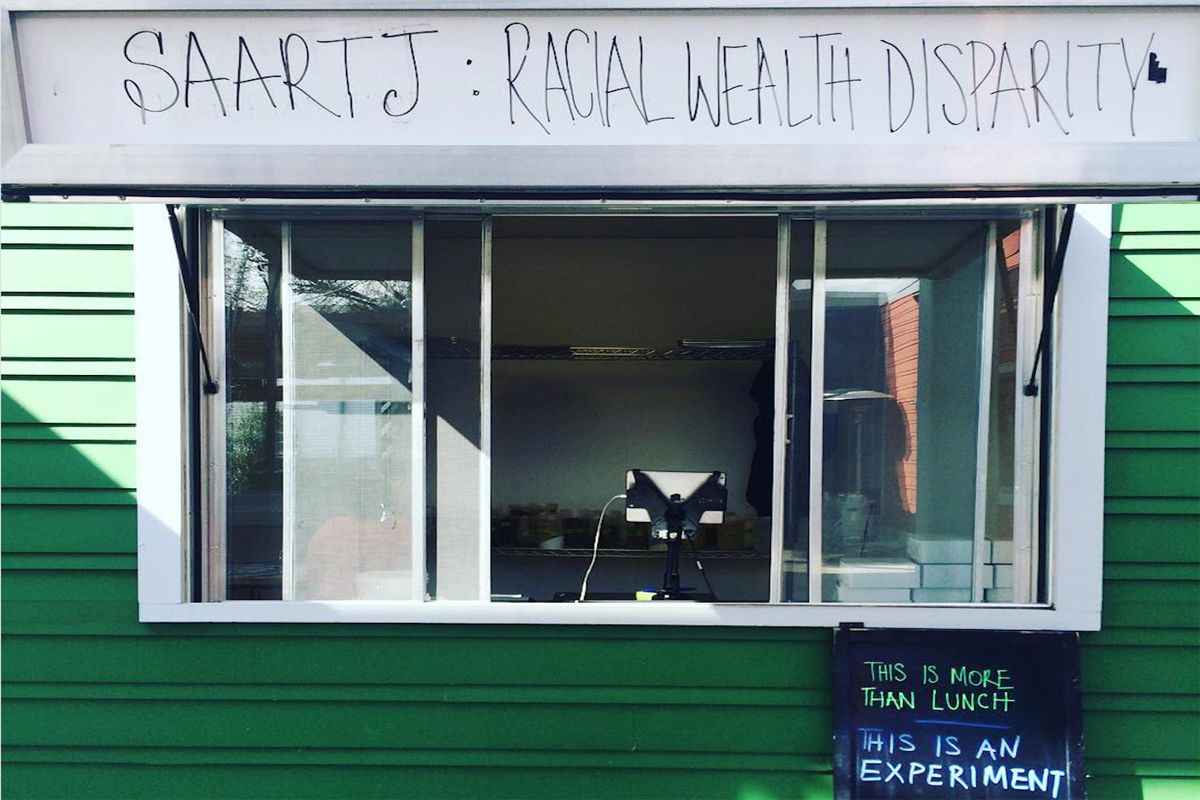 SAARTJ: RACIAL WEALTH DISPARITY
THIS IS MORE
THAN LUNCH
THIS IS AN
EXPERIMENT